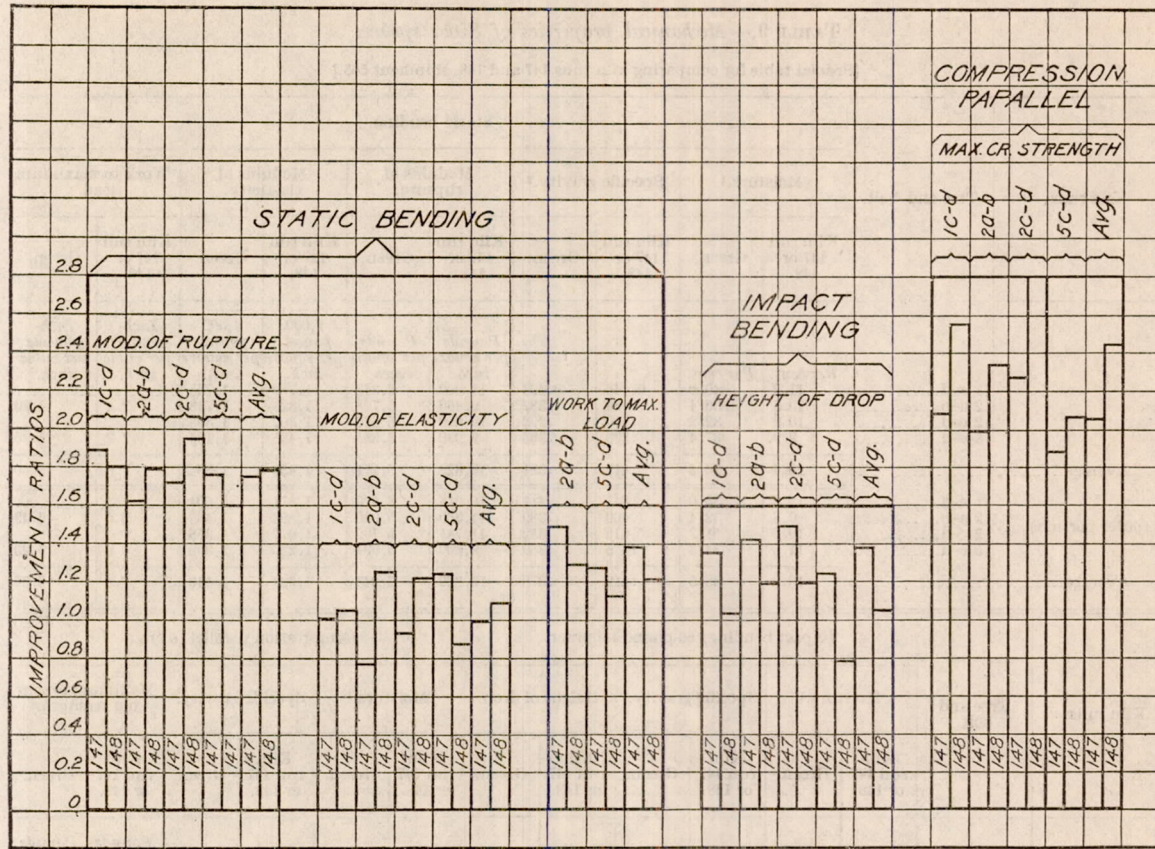 COMPRESSION
PAPALLEL
MAX. CR. STRENGTH
1c-d 2a-b 2c-d 5c-d Avg.
STATIC BENDING
MOD. OF RUPTURE
1c-d 2a-b 2c-d 5c-d Avg.
MOD. OF ELASTICITY
1c-d 2a-b 2c-d 5c-d Avg.
WORK TO MAX.
LOAD
2a-b 5c-d Avg.
IMPACT
BENDING
HEIGHT OF DROP
1c-d 2a-b 2c-d 5c-d Avg.
IMPROVEMENT RATIOS
2.8
2.6
2.4
2.2
2.0
1.8
1.6
1.4
1.2
1.0
0.8
0.6
0.4
0.2
0
147 148 147 148 147 148 147 148 147 148
147 148 147 148 147 148 147 148 147 148
147 148 147 148 147 148
147 148 147 148 147 148 147 148 147 148
147 148 147 148 147 148 147 148 147 148